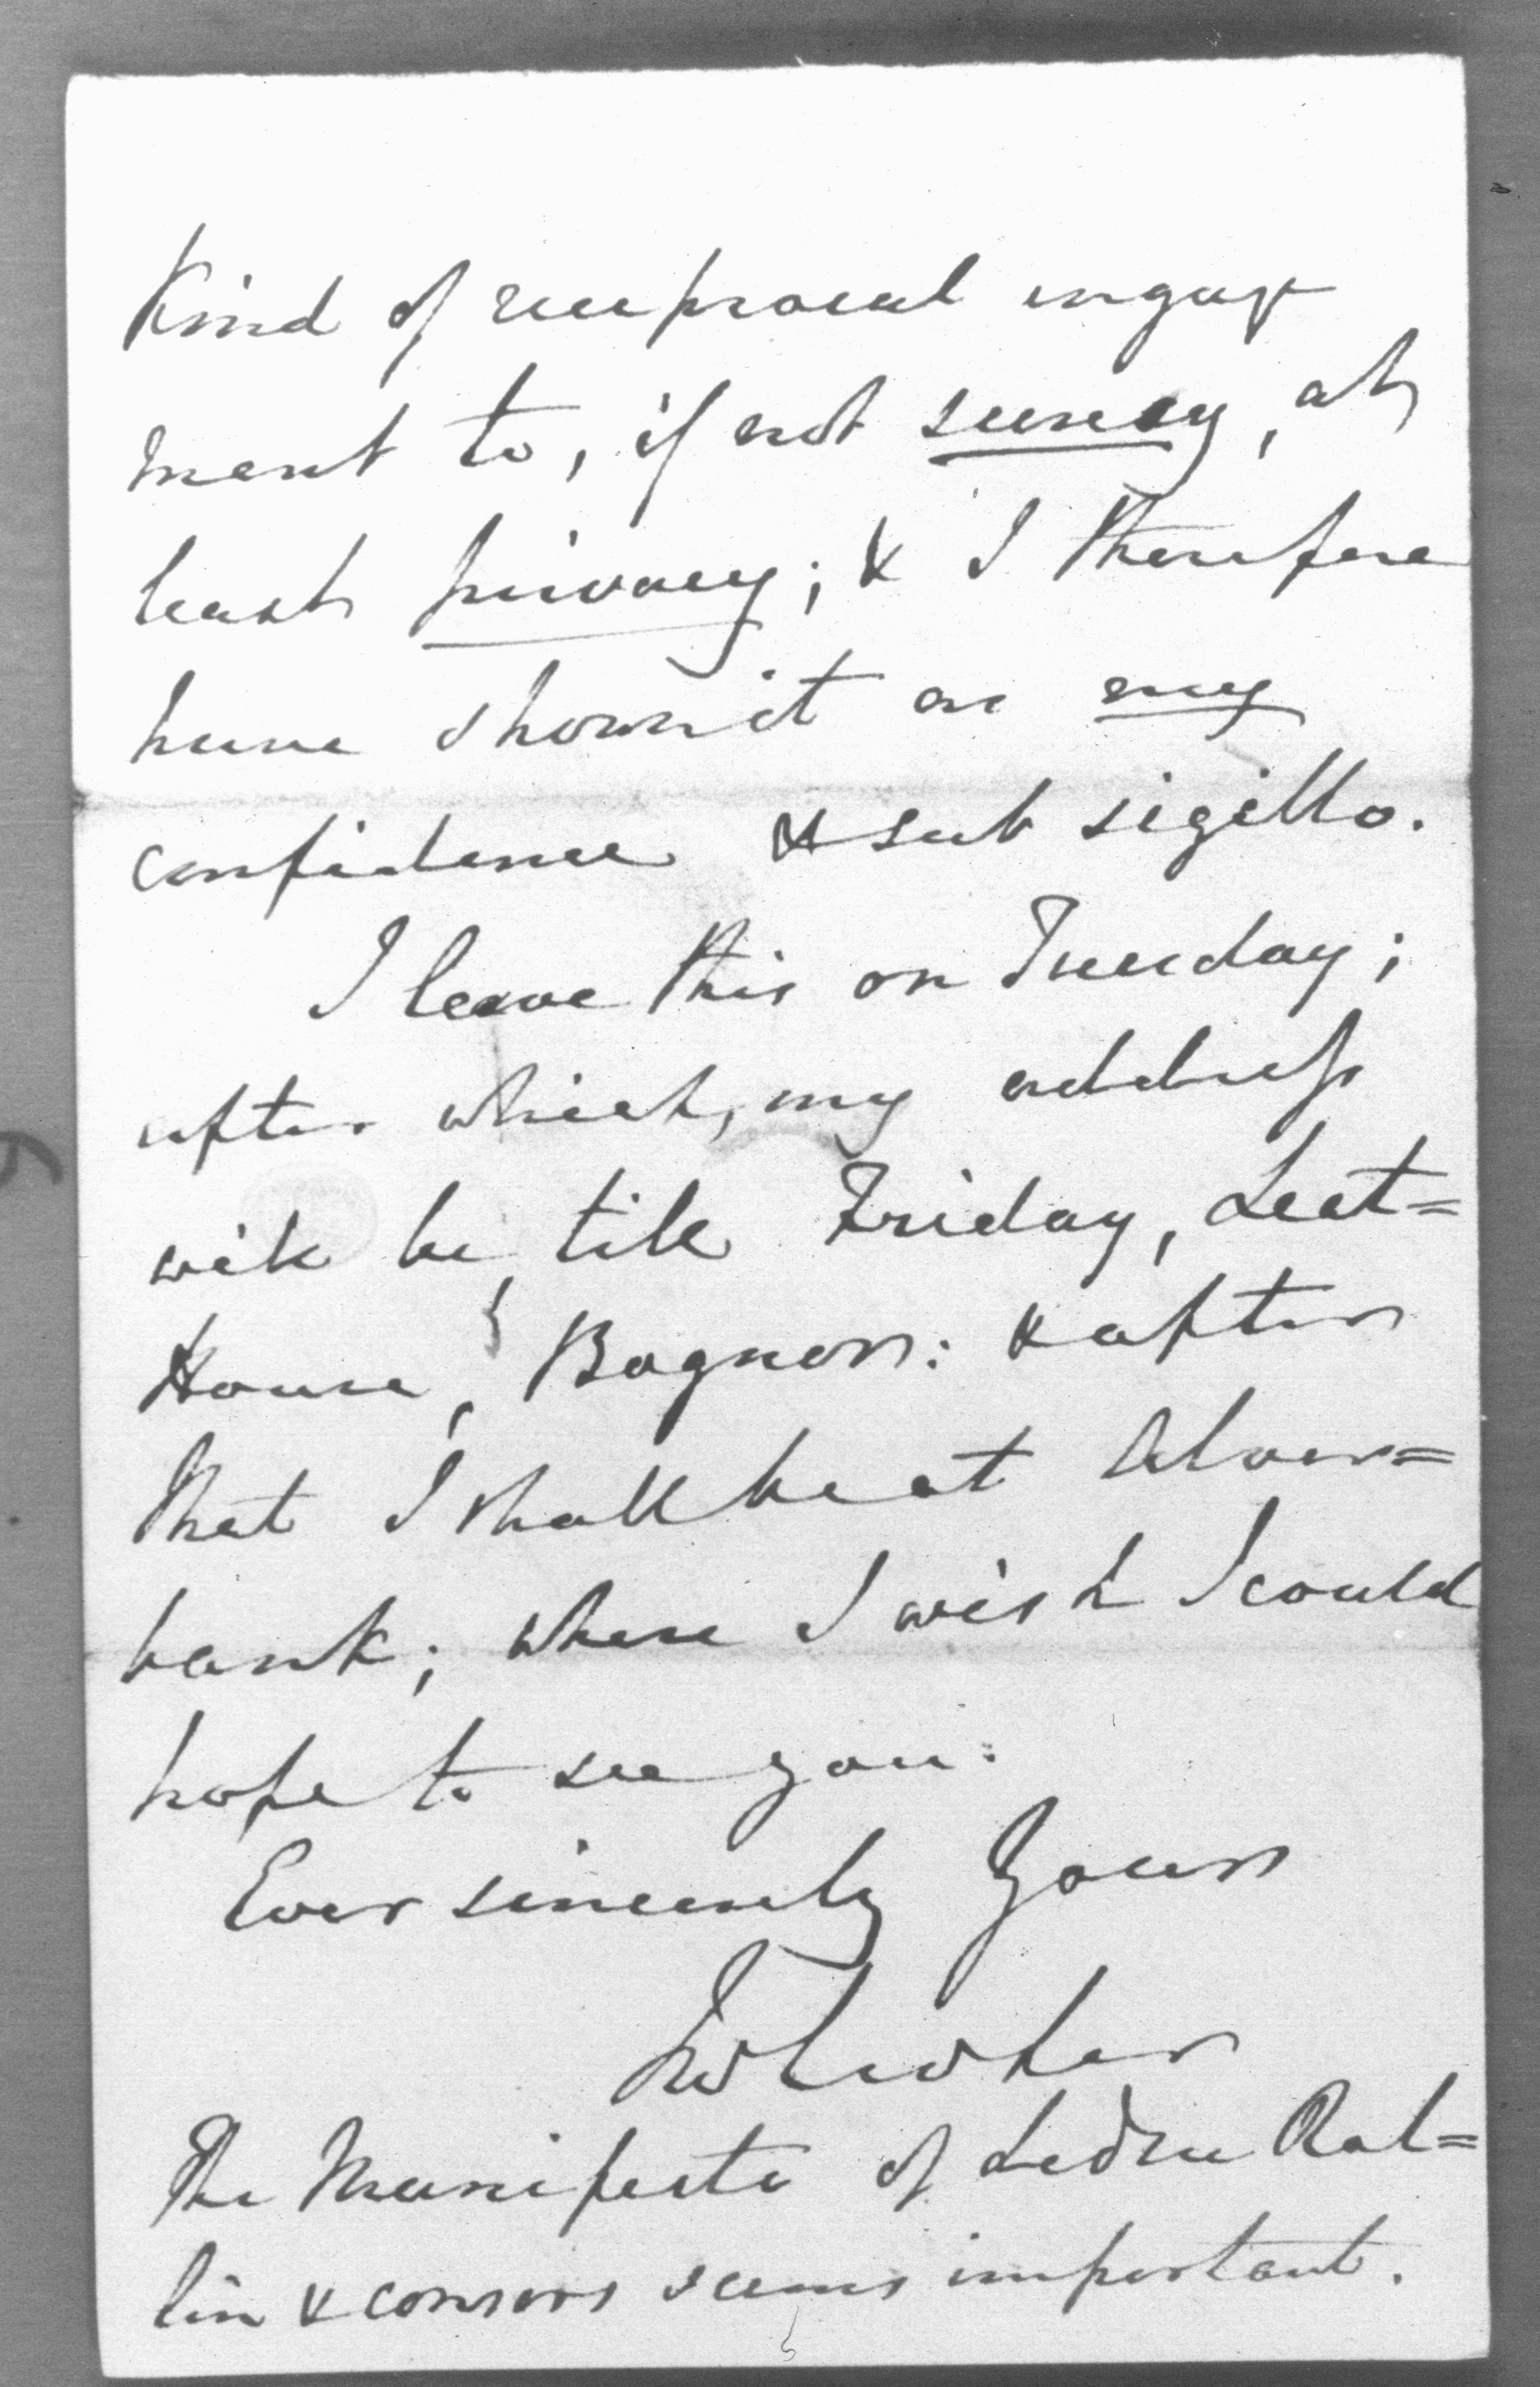 Kind of reciprocal engage
ment to, if not secresy, at
least privacy; & I therefore
have shown it on my
confidence & sub sigillo.
I leave this on Tuesday;
after which, my address
will be, till Friday, Leet=
House, Bognor: & after
that I shall be at Alver=
bank; where I wish I could
hope to see you.
Ever sincerely Yours
JWCroker
The Manifesto of Ledru Rol=
lin & consors seems important.